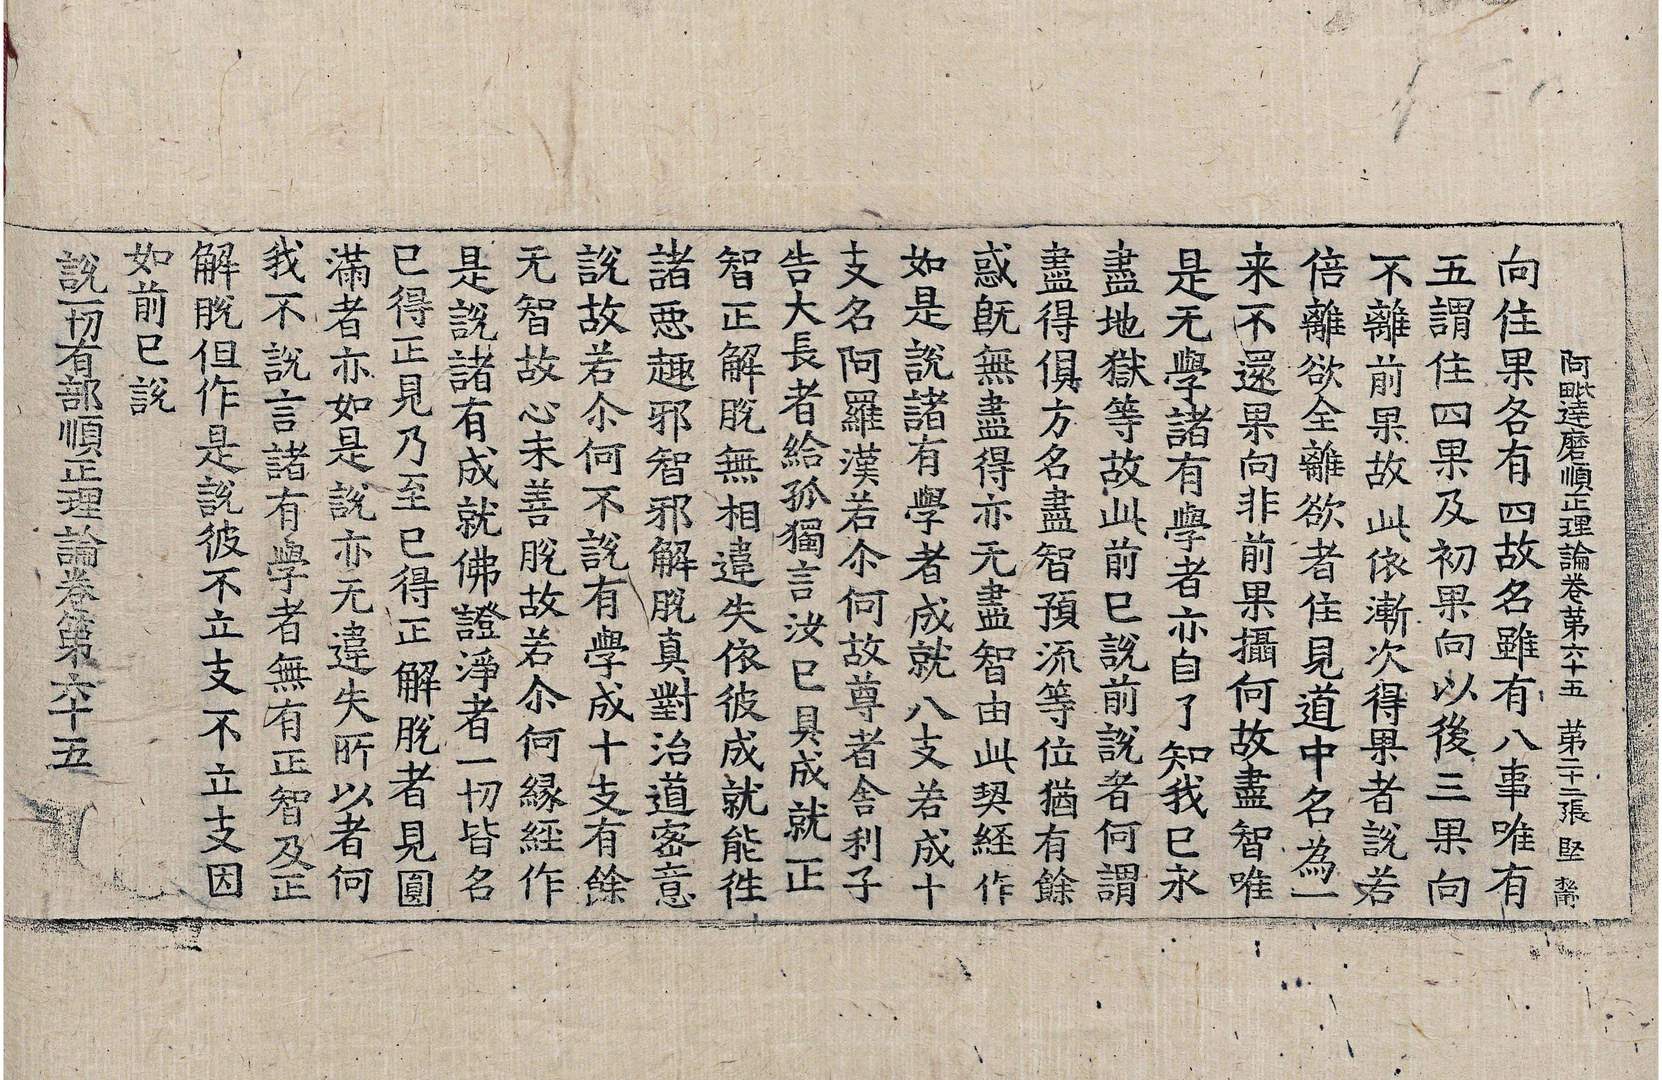 阿毗達磨順正理論卷苐六十五 苐二十二張 堅
向住果各有四故名雖有八事唯有
五謂住四果及初果向以後三果向
不離前果故此依漸次得果者說若
倍離欲全離欲者住見道中名為一
来不還果向非前果攝何故盡智唯
是无學諸有學者亦自了知我已永
盡地獄等故此前已說前說者何謂
盡得俱方名盡智預流等位猶有餘
惑旣無盡得亦无盡智由此契經作
如是說諸有學者成就八支若成十
支名阿羅漢若尒何故尊者舍利子
告大長者給孤獨言汝已具成就正
智正解脫無相違失依彼成就能徃
諸惡趣邪智邪解脫真對治道密意
說故若尒何不說有學成十支有餘
无智故心未善脫故若尒何緣經作
是說諸有成就佛證淨者一切皆名
已得正見乃至已得正解脫者見圓
滿者亦如是說亦无違失所以者何
我不說言諸有學者無有正智及正
解脫但作是說彼不立支不立支因
如前已說
說一切有部順正理論卷第六十五